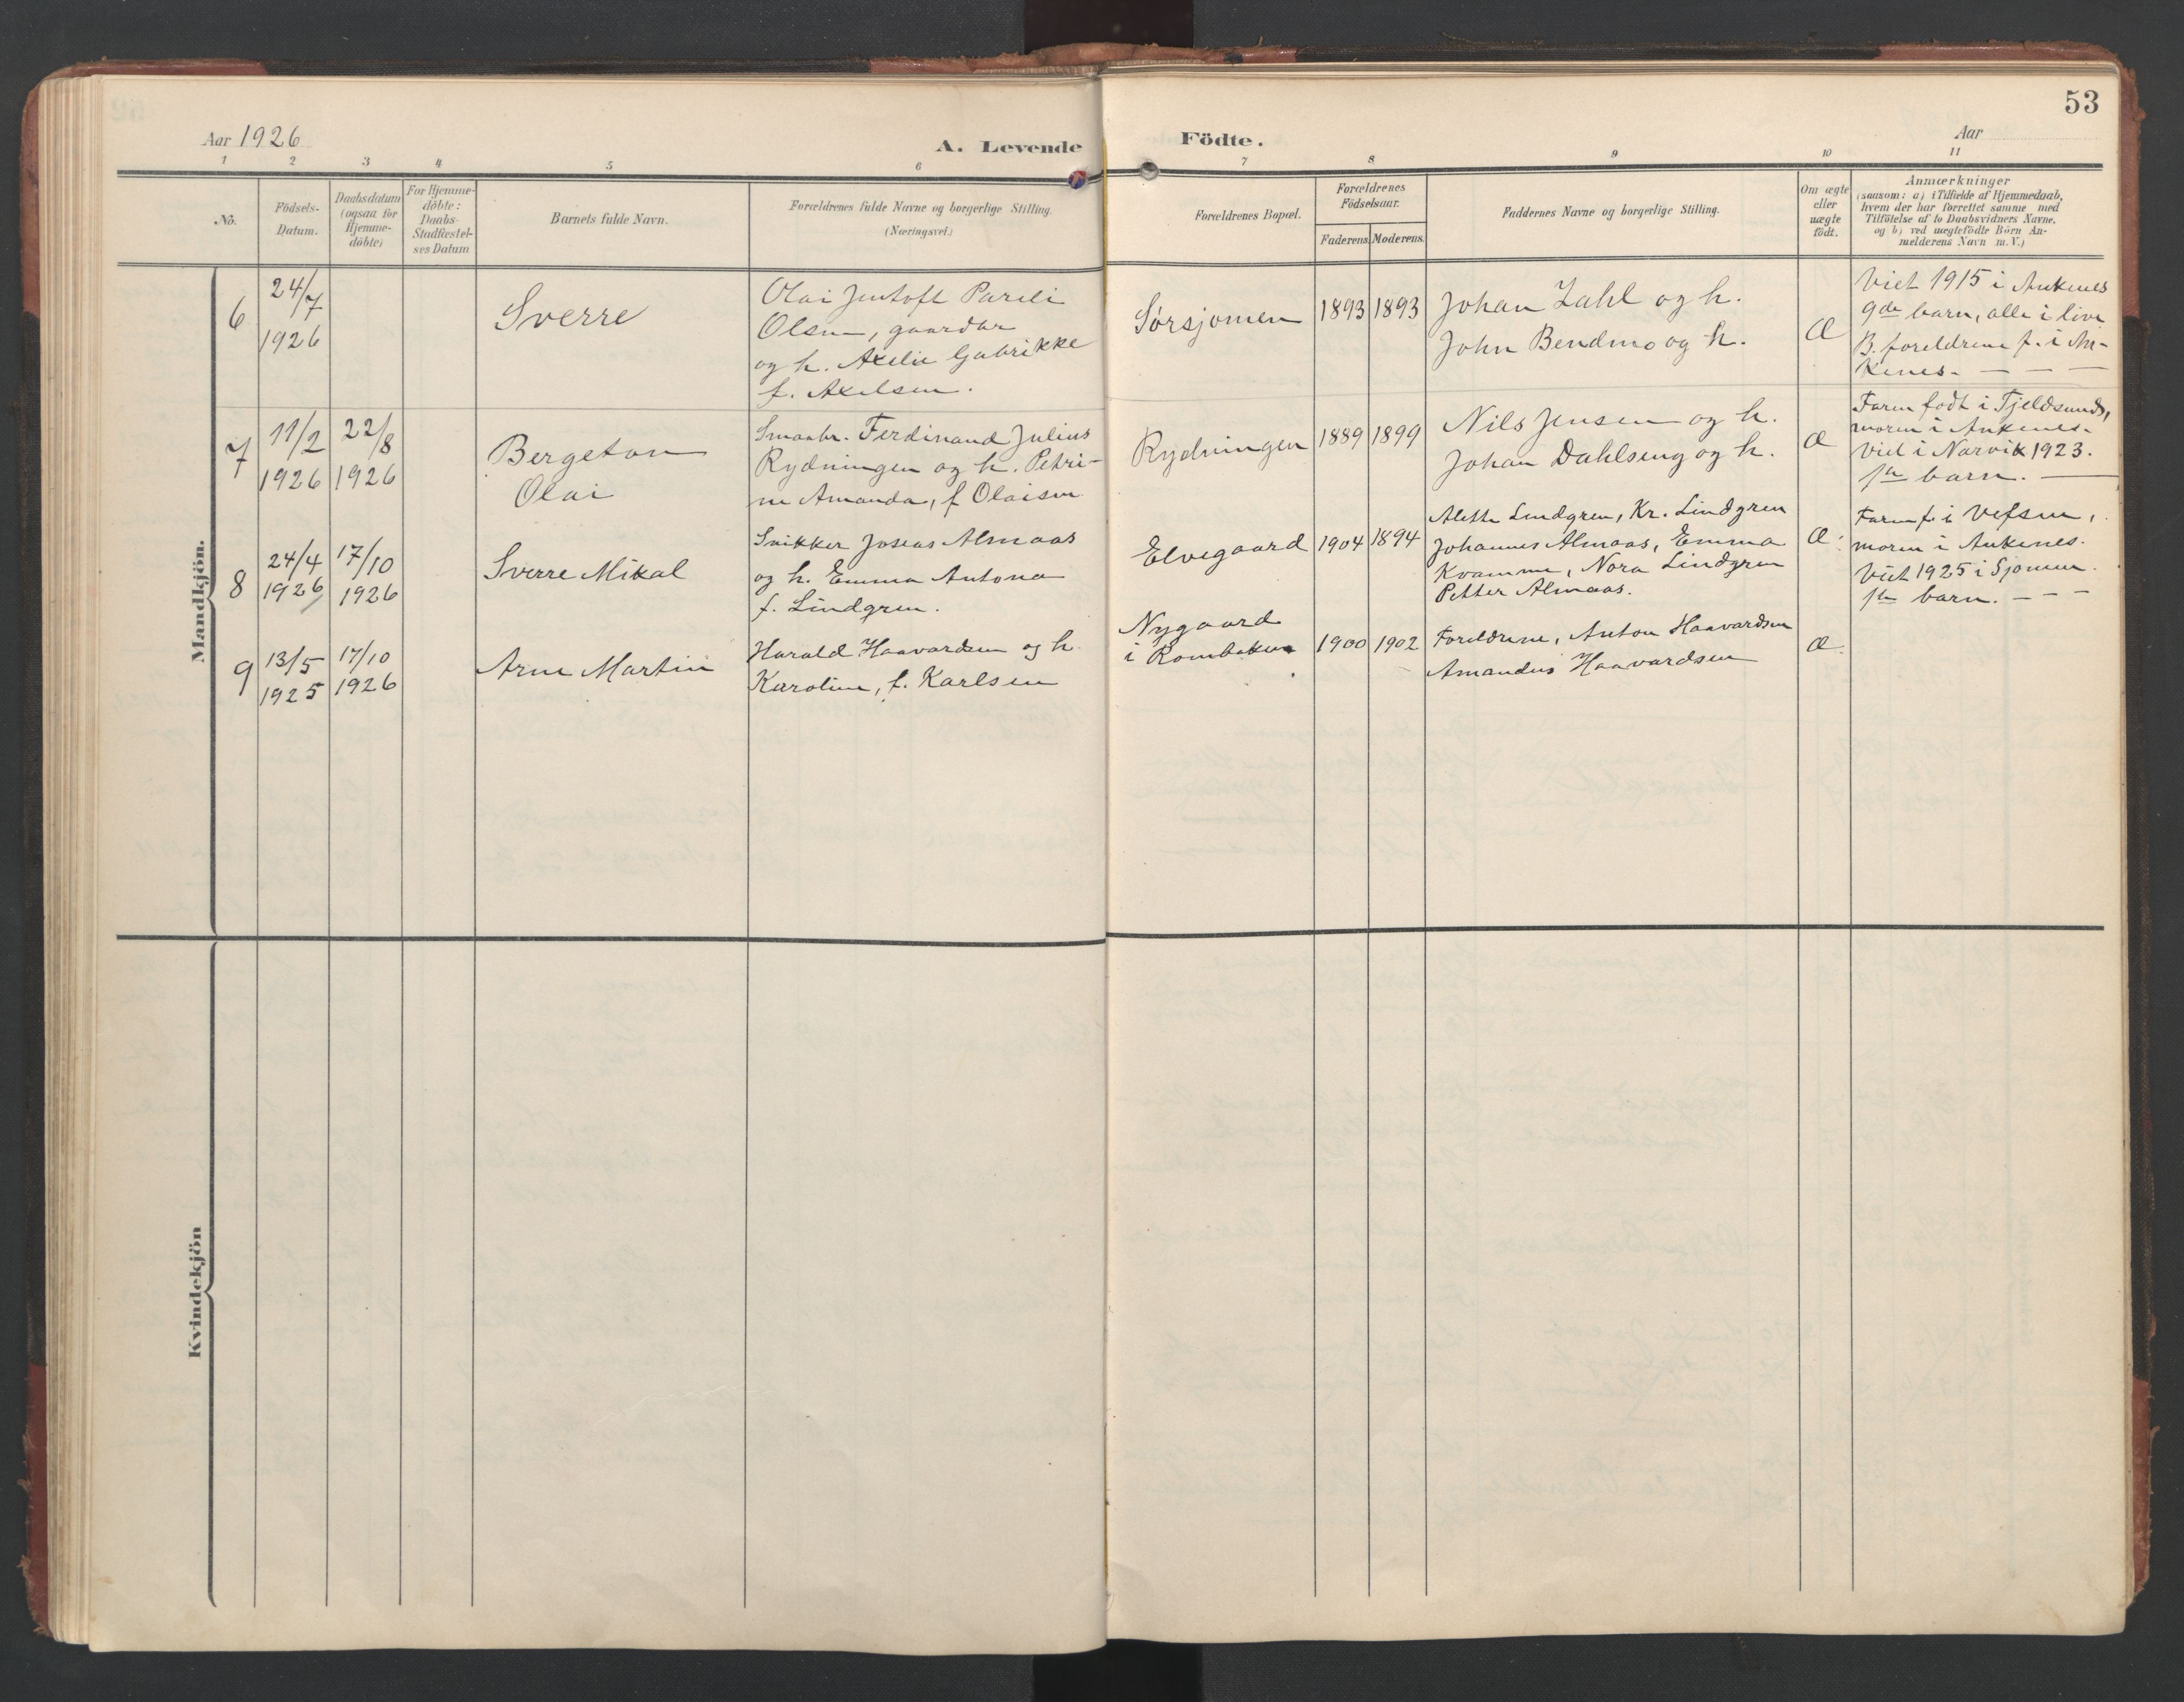 53
Aar 1926
A. Levende
Födte.
Aar
1 2 3 4 5 6 7 8 9 10 11
No.
Födsels-
Datum.
Daabsdatum
(ogsaa for
Hjemme-
döbte)
For Hjemme-
döbte:
Daabs-
Stadfæstel-
ses Datum
Barnets fulde Navn.
Forældrenes fulde Navne og borgerlige Stilling.
(Næringsvei.)
Forældrenes Bopæl.
Forældrenes
Födselsaar.
Faderens. Moderens.
Faddernes Navne og borgerlige Stilling.
Om ægte
eller
uægte
födt.
Anmærkninger
(saasom: a) i Tilfælde af Hjemmedaab,
hvem der har forrettet samme med
Tilföielse af to Daabsvidners Navne,
og b) ved uægtefödte Börn An-
melderens Navn m. V.)
Mandkjön.
6
24/7
1926
Sverre
Olai Jentoft Pareli
Olsen, gaardbr
og h. Axelie Gabrikke
f. Axelsen.
Sørsjomen
1893 1893
Johan Zahl og h.
John Bendmo og h.
Æ
Viet 1915 i Ankenes
9de barn, alle i live
B. foreldrene f. i An-
kenes. — — —
7
11/2
1926
22/8
1926
Bergeton
Olai
Smaabr. Ferdinand Julius
Rydningen og h. Petri-
ne Amanda, f Olaisen
Rydningen
1889 1899
Nils Jensen og h.
Johan Dahlseng og h.
Æ
Faren født i Tjeldsund,
moren i Ankenes.
Viet i Narvik 1923.
1ste barn. —
8
24/4
1926
17/10
1926
Sverre Mikal
Snikker Joseas Almaas
og h. Emma Antona
f. Lindgren.
Elvegaard
1904 1894
Alette Lindgren, Kr. Lindgren
Johannes Almaas, Emma
Kvamme, Nora Lindgren
Petter Almaas.
Æ.
Faren f. i Vefsen,
moren i Ankenes.
Viet 1925 i Sjomen.
1ste barn. — — —
9
13/5
1925
17/10
1926
Arne Martin
Harald Haavardsen og h.
Karoline, f. Karlsen
Nygaard
i Rombaken
1900 1902
Foreldrene, Anton Haavardsen
Amandus Haavardsen
Æ.
Kvindekjön